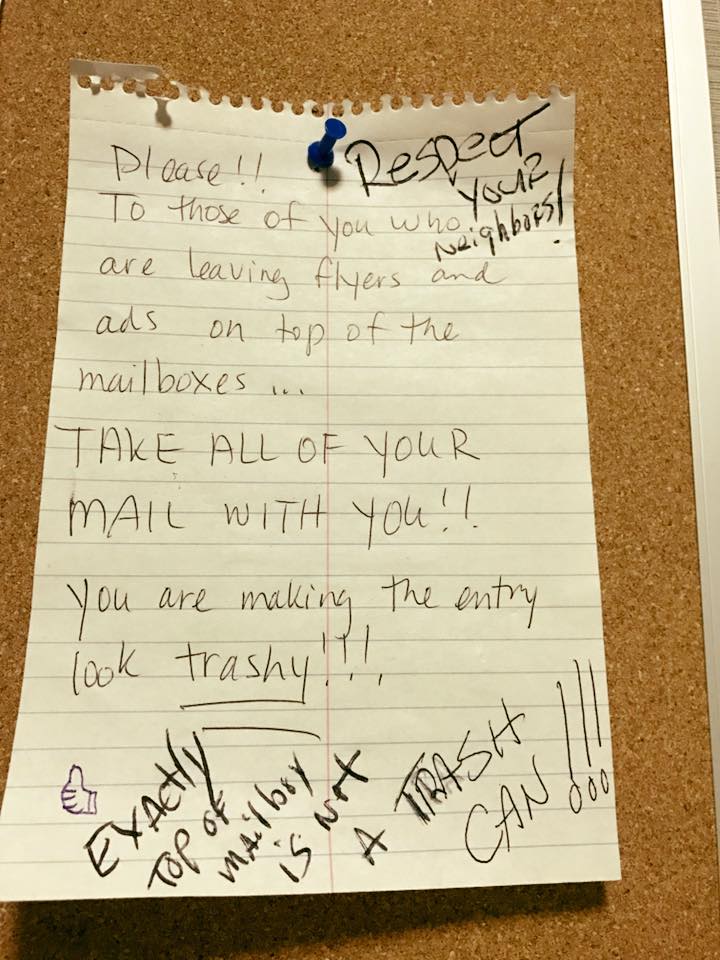 Please!!
Respect
YOUR
NEighboRS!
To those of you who
are leaving flyers and
ads on top of the
mailboxes ...
TAKE ALL OF YOUR
MAIL WITH YOU!!
You are making the entry
look trashy!!!
EXACtly
TOP OF
mailbox
is Not
A TRASH
CAN !!!